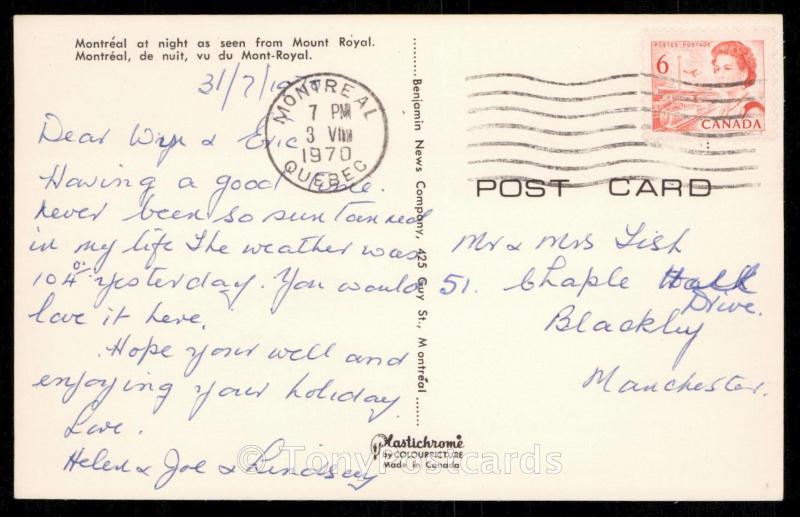 Montréal at night as seen from Mount Royal.
Montréal, de nuit, vu du Mont-Royal.
31/7/1970
MONTREAL
7 PM
3 VIII
1970
QUEBEC
POSTES POSTAGE
6
CANADA
POST CARD
Dear Wyn & Eric
Having a good time.
never been so sun tanned
in my life The weather was
104° yesterday. You would
love it here.
Hope your well and
enjoying your holiday
Love.
Helen & Joe & Lindsay
Benjamin News Company, 425 Guy St., Montréal
Mr & Mrs Fish
51. Chaple
Drive.
Blackley
Manchester.
Plastichrome
by COLOURPICTURE
Made in Canada
© TonyPostcards